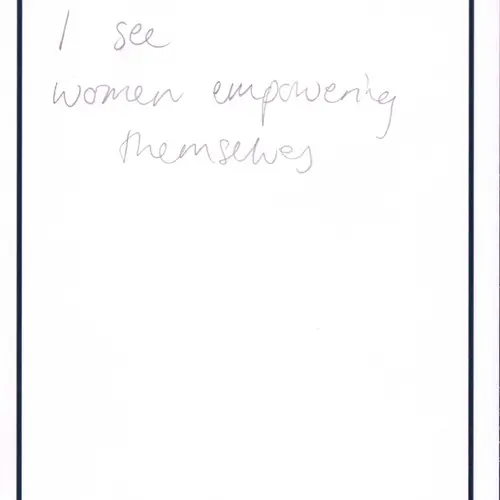 I see
women empowering
themselves